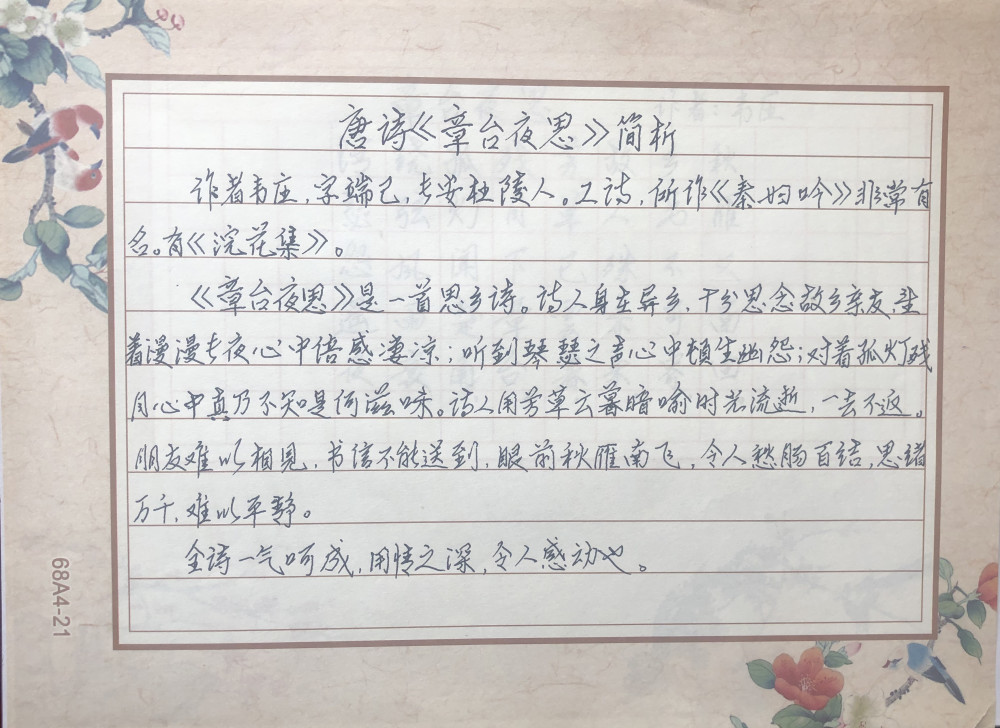 唐诗《章台夜思》简析
作者韦庄,字端己,长安杜陵人。工诗,所作《秦妇吟》非常有
名。有《浣花集》。
《章台夜思》是一首思乡诗。诗人身在异乡,十分思念故乡亲友,坐
着漫漫长夜心中倍感凄凉;听到琴瑟之声心中顿生幽怨;对着孤灯残
月心中真乃不知是何滋味。诗人用芳草云暮暗喻时光流逝,一去不返。
朋友难以相见,书信不能送到,眼前秋雁南飞,令人愁肠百结,思绪
万千,难以平静。
全诗一气呵成,用情之深,令人感动也。
68A4-21